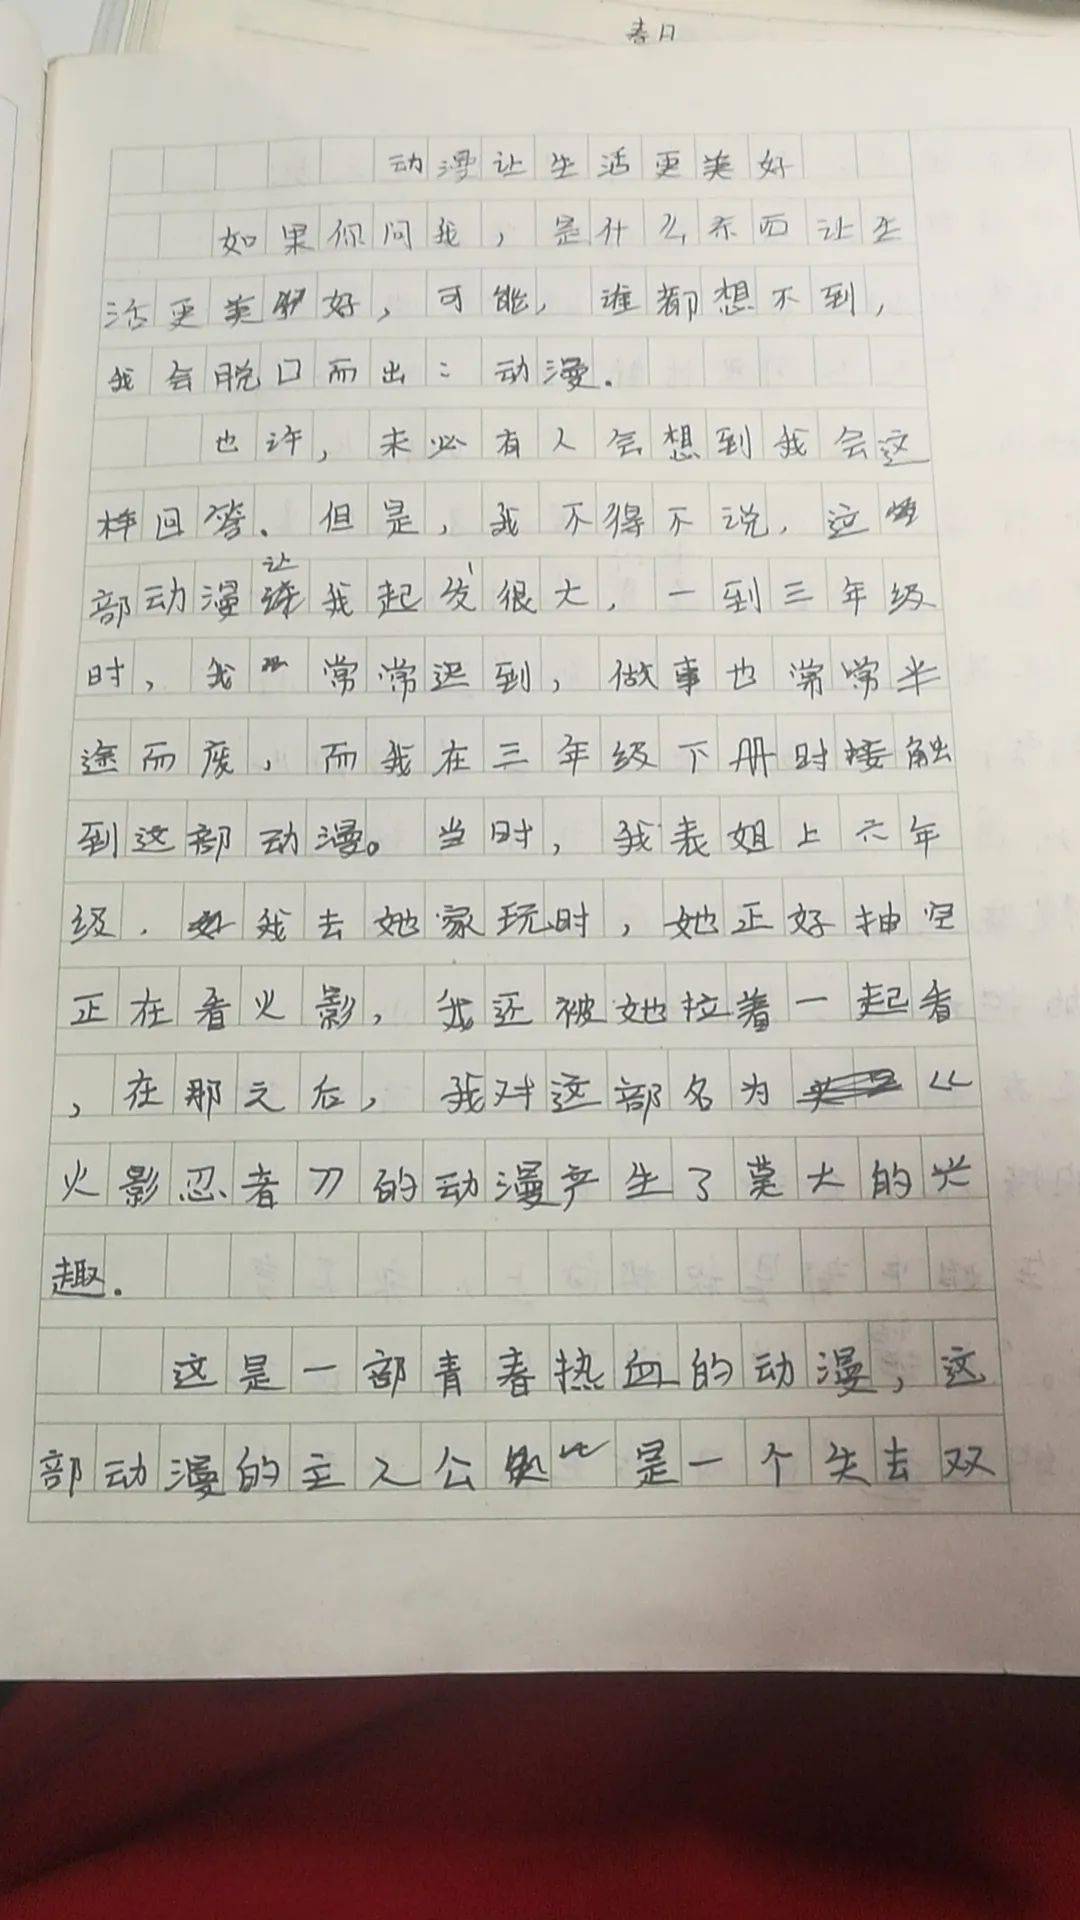 春日
动漫让生活更美好
如果你问我，是什么东西让生
活更美好，可能，谁都想不到，
我会脱口而出：动漫.
也许，未必有人会想到我会这
样回答.但是，我不得不说，这
部动漫让我起发很大，一到三年级
时，我常常迟到，做事也常常半
途而废，而我在三年级下册时接触
到这部动漫。当时，我表姐上六年
级.我去她家玩时，她正好抽空
正在看火影，我还被她拉着一起看
，在那之后，我对这部名为《
火影忍者》的动漫产生了莫大的兴
趣.
这是一部青春热血的动漫，这
部动漫的主人公是一个失去双